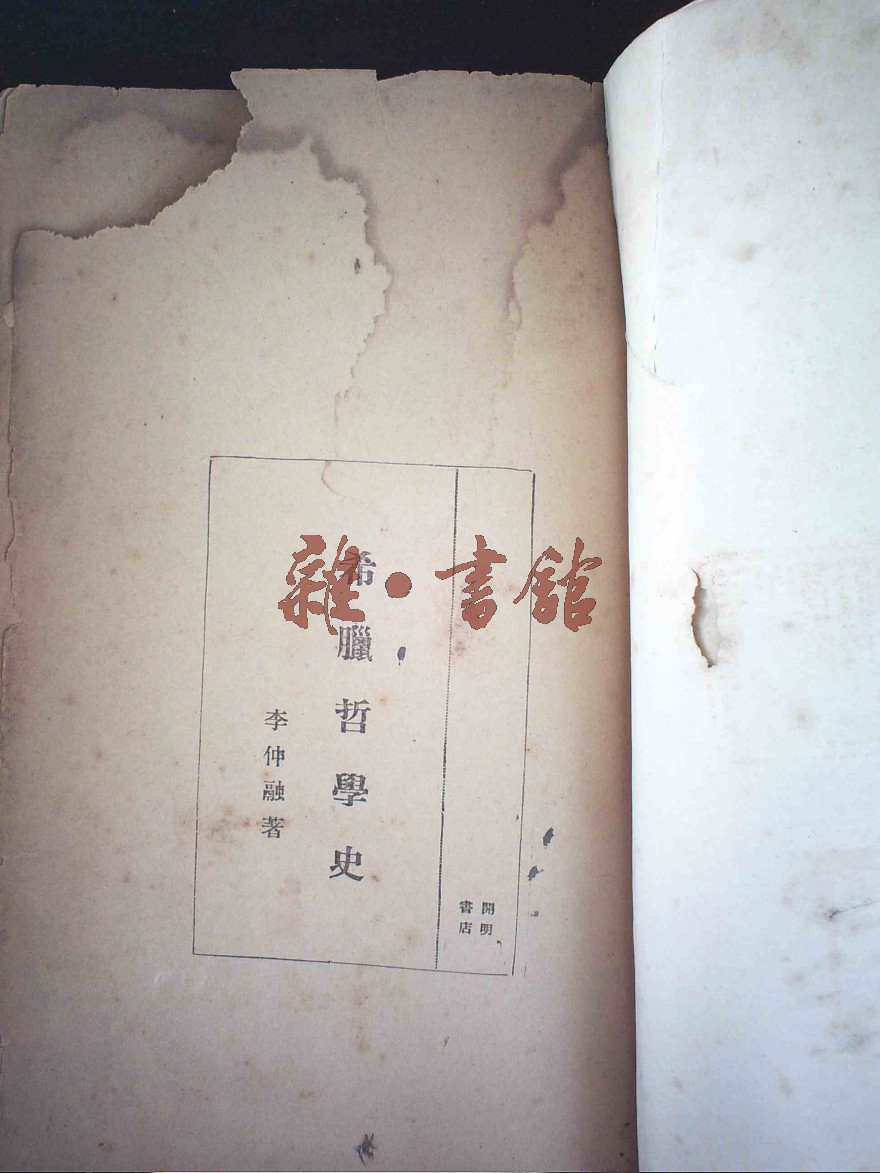 開明
書店
希臘哲學史
李仲融著
雜·書館